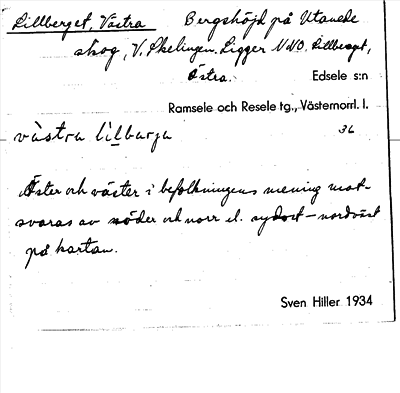 Lillberget, Västra Bergshöjd på Utanede
skog, V. Skelingen. Ligger NNO. Lillberget,
Östra. Edsele s:n
Ramsele och Resele tg., Västernorrl. l.
västra lilbarja 36
Öster och väster i befolkningens mening mot-
svaras av söder och norr el. sydost – nordväst
på kartan.
Sven Hiller 1934